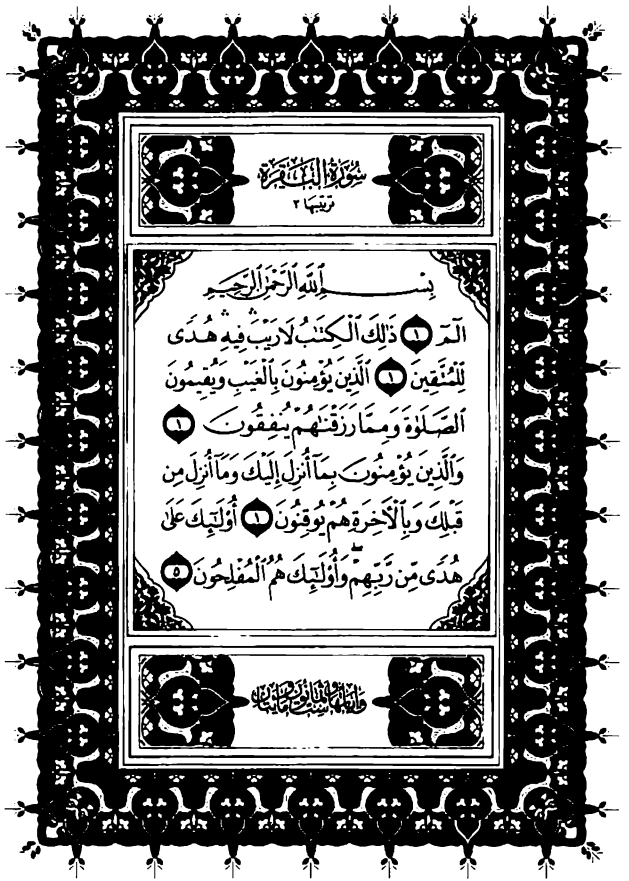 سُورَةُ الْبَقَرَةِ
ترتيبها ٢
بِسْمِ ٱللَّهِ ٱلرَّحْمَٰنِ ٱلرَّحِيمِ
الٓمٓ ١ ذَٰلِكَ ٱلْكِتَٰبُ لَا رَيْبَ ۛ فِيهِ ۛ هُدًى
لِّلْمُتَّقِينَ ١ ٱلَّذِينَ يُؤْمِنُونَ بِٱلْغَيْبِ وَيُقِيمُونَ
ٱلصَّلَوٰةَ وَمِمَّا رَزَقْنَٰهُمْ يُنفِقُونَ ١
وَٱلَّذِينَ يُؤْمِنُونَ بِمَآ أُنزِلَ إِلَيْكَ وَمَآ أُنزِلَ مِن
قَبْلِكَ وَبِٱلْأَخِرَةِ هُمْ يُوقِنُونَ ١ أُو۟لَٰٓئِكَ عَلَىٰ
هُدًى مِّن رَّبِّهِمْ ۖ وَأُو۟لَٰٓئِكَ هُمُ ٱلْمُفْلِحُونَ ٥
وآياتها ست وثمانون ومايتان